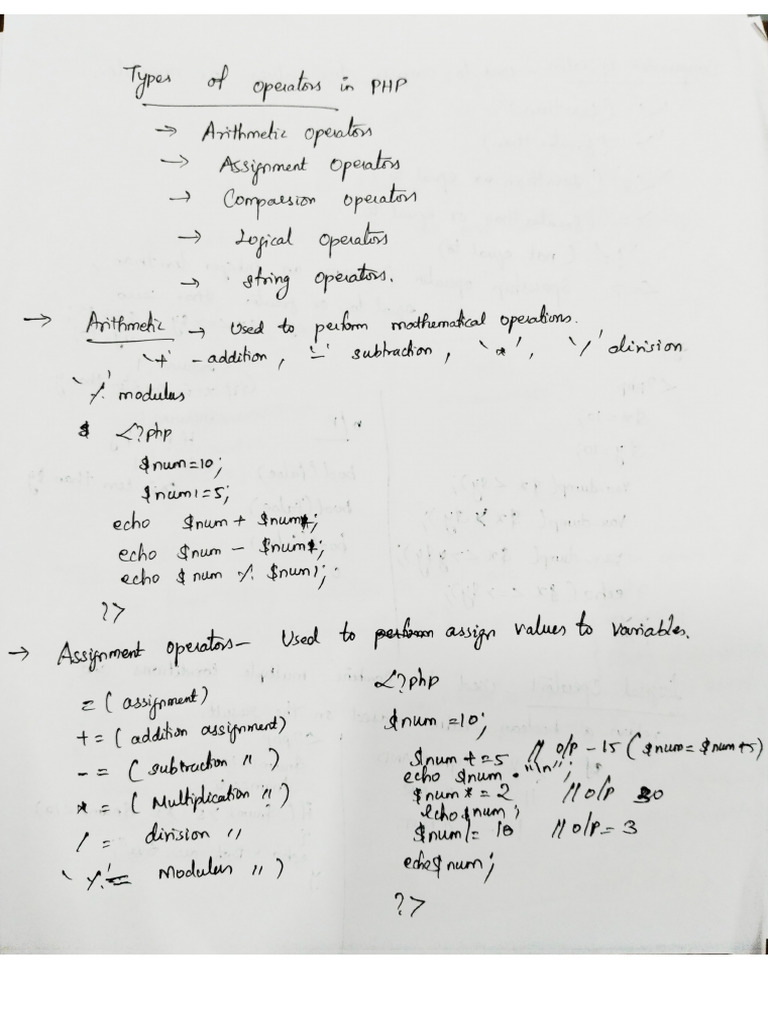 Types of operators in PHP
→ Arithmetic operators
→ Assignment operators
→ Comparsion operators
→ Logical operators
→ string operators.
→ Arithmetic → Used to perform mathematical operations.
'+' - addition, '-' subtraction, '*', '/' division
'%' modulus
<?php
$num=10;
$num1=5;
echo $num + $num1;
echo $num - $num1;
echo $num % $num1;
?>
→ Assignment operators - Used to assign values to variables.
= (assignment)
+= (addition assignment)
-= (subtraction ")
*= (Multiplication ")
/= division "
'%=' Modulus ")
<?php
$num =10;
$num +=5 // o/p - 15 ($num=$num+5)
echo $num . "\n";
$num *= 2 // o/p 30
echo $num;
$num /= 10 // o/p = 3
echo $num;
?>